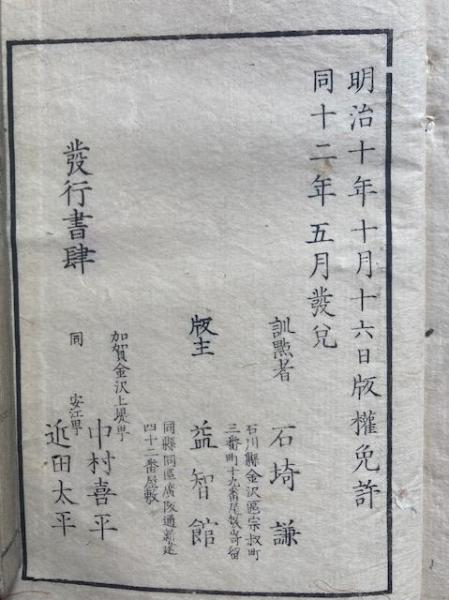 明治十年十月十六日版權免許
同十二年五月發兌
訓點者
石川縣金沢區宗叔町
三番町十九番屋敷寄留
石埼謙
版主
同縣同區廣阪通
四十二番屋敷
益智館
發行書肆
加賀金沢上堤町
中村喜平
同 安江町
近田太平